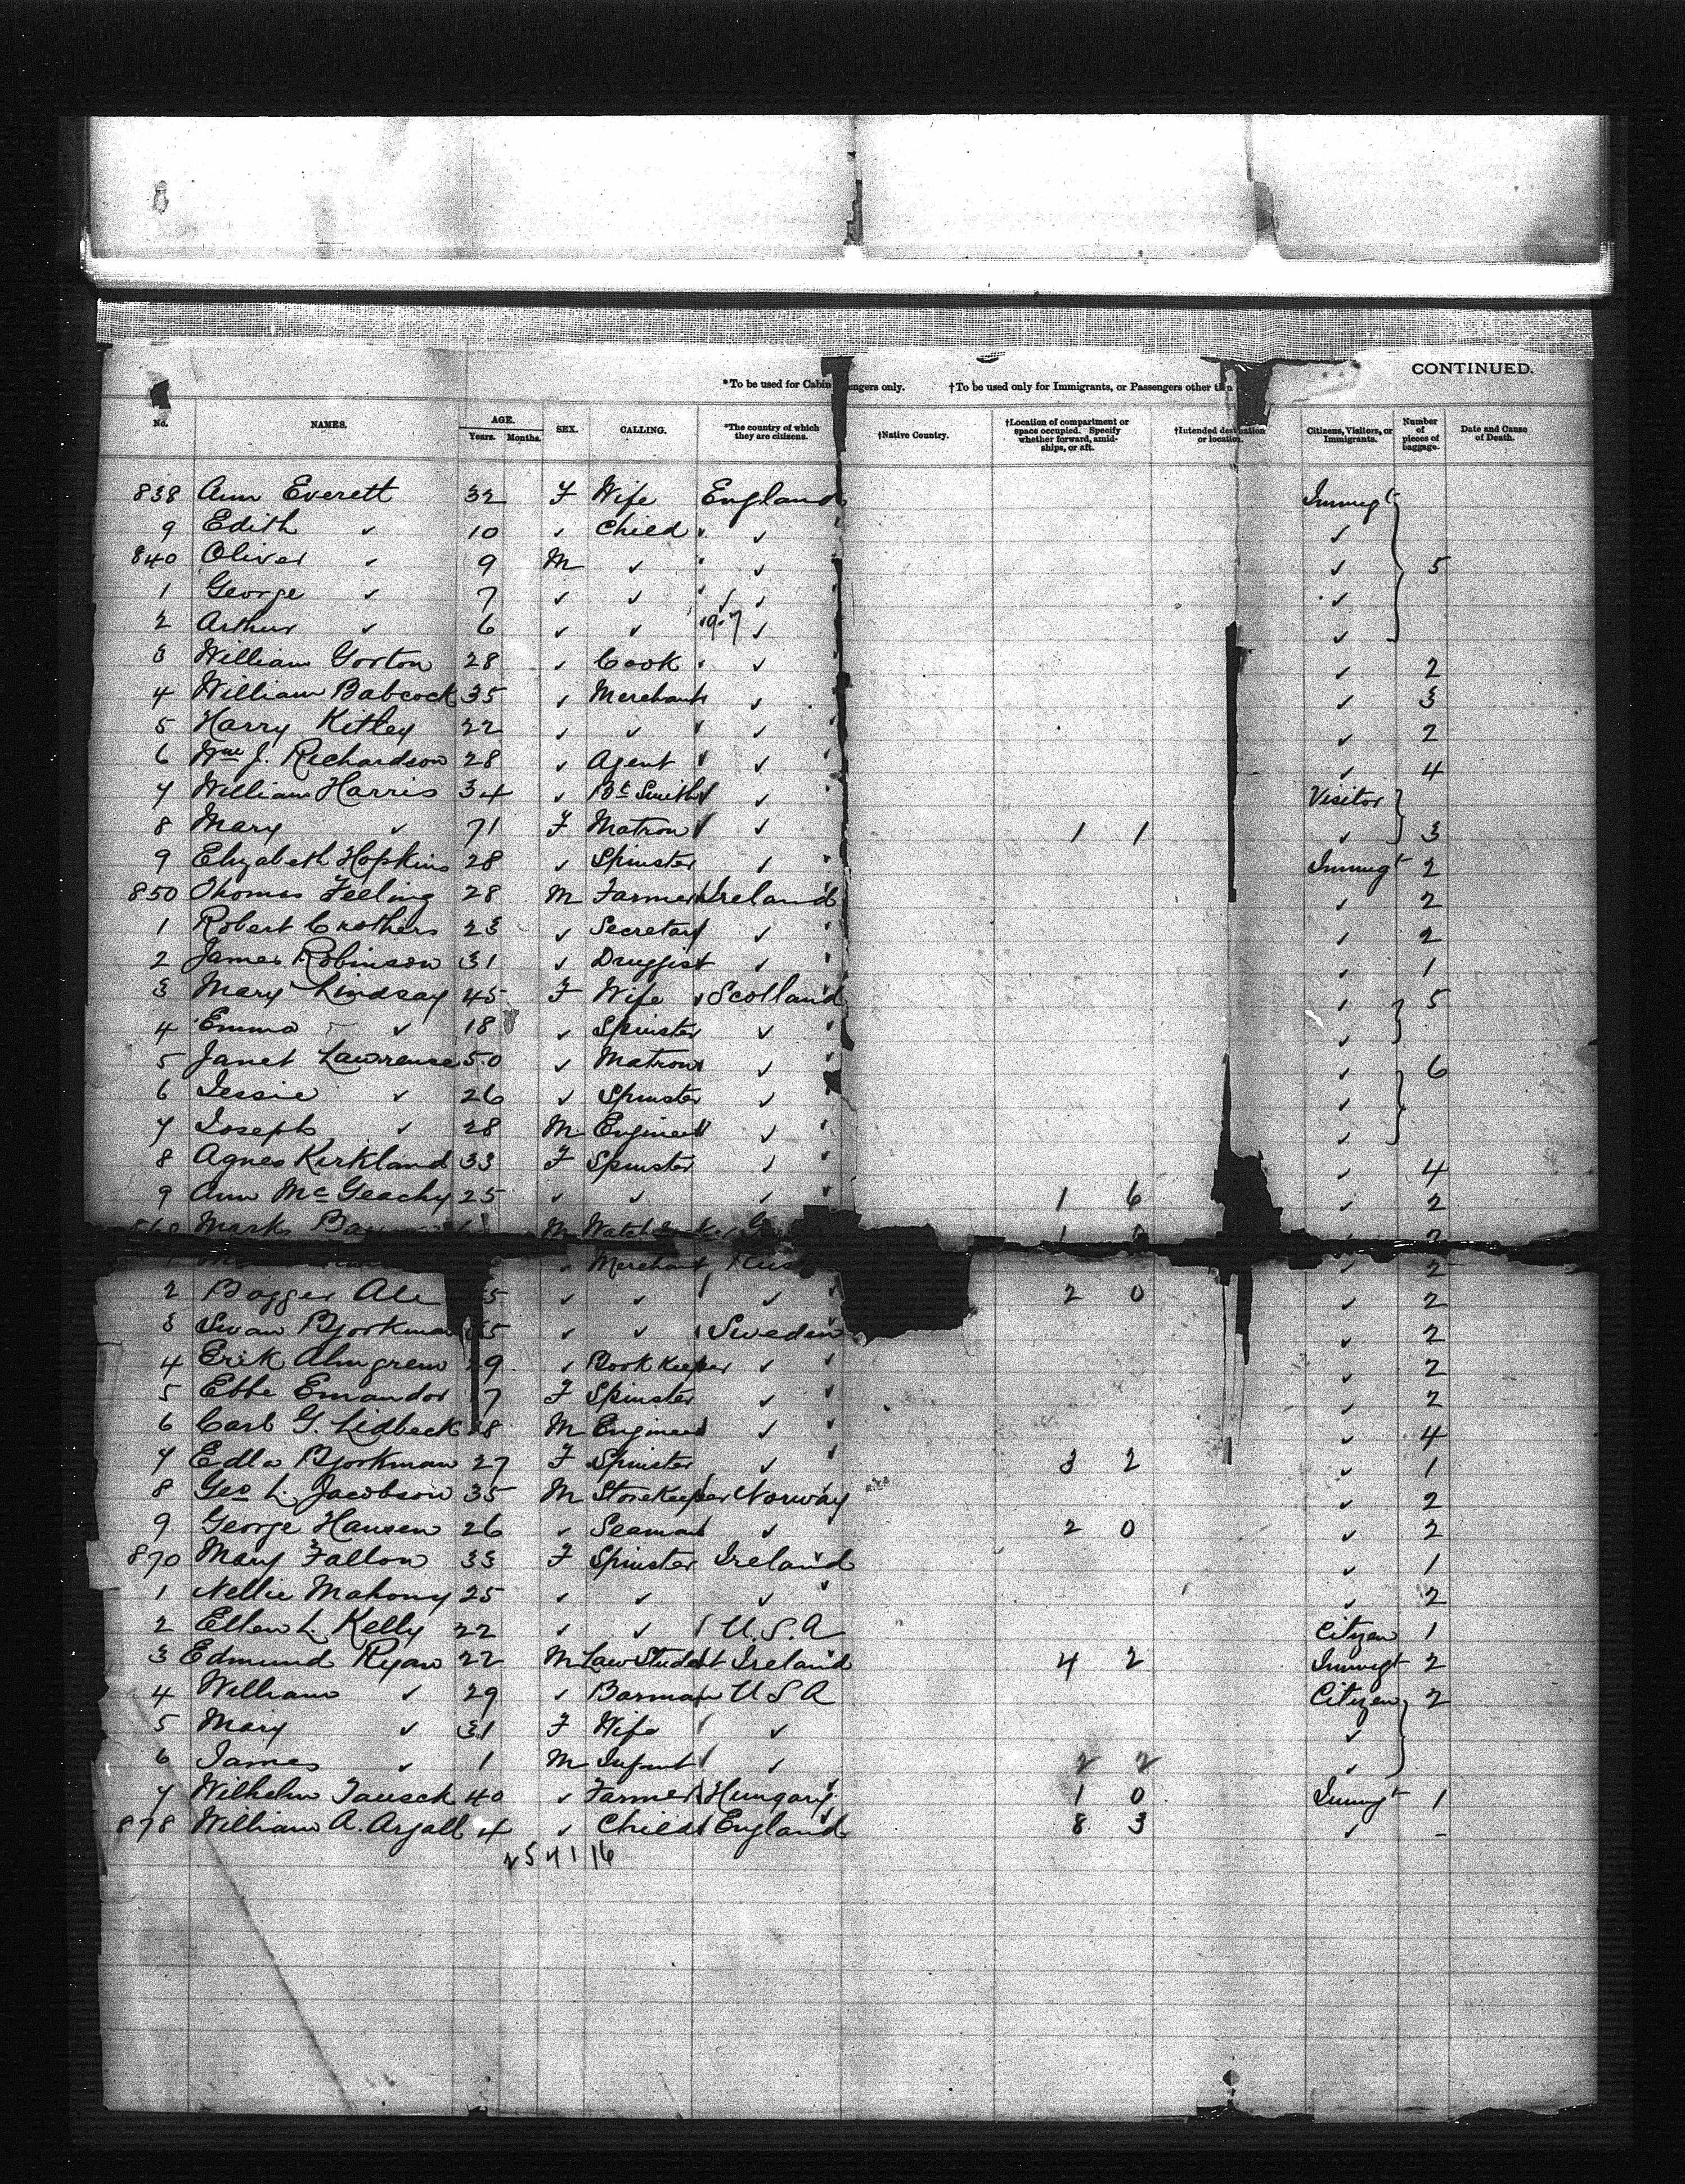 CONTINUED.
*To be used for Cabin engers only. †To be used only for Immigrants, or Passengers other th n
No. NAMES. AGE. Years. Months. SEX. CALLING. *The country of which they are citizens. †Native Country. †Location of compartment or space occupied. Specify whether forward, amidships, or aft. †Intended destination or location. Citizens, Visitors, or Immigrants. Number of pieces of baggage. Date and Cause of Death.
838 Ann Everett 32 F Wife England Immigt
9 Edith ✓ 10 ✓ Child ✓ ✓
840 Oliver ✓ 9 M ✓ ✓ ✓ 5
1 George ✓ 7 ✓ ✓ ✓ ✓
2 Arthur ✓ 6 ✓ ✓ ✓ ✓
3 William Gorton 28 ✓ Cook ✓ ✓ 2
4 William Babcock 35 ✓ Merchant ✓ ✓ 3
5 Harry Kitley 22 ✓ ✓ ✓ ✓ 2
6 Wm J. Richardson 28 ✓ Agent ✓ ✓ 4
7 William Harris 34 ✓ Bt Smith ✓ Visitor
8 Mary ✓ 71 F Matron ✓ 1 1 ✓ 3
9 Elizabeth Hopkins 28 ✓ Spinster ✓ Immigt 2
850 Thomas Feeling 28 M Farmer Ireland ✓ 2
1 Robert Crothers 23 ✓ Secretary ✓ ✓ 2
2 James Robinson 31 ✓ Druggist ✓ ✓ 1
3 Mary Lindsay 45 F Wife Scotland ✓ 5
4 Emma ✓ 18 ✓ Spinster ✓ ✓
5 Janet Lawrense 50 ✓ Matron ✓ ✓ 6
6 Jessie ✓ 26 ✓ Spinster ✓ ✓
7 Joseph ✓ 28 M Engineer ✓ ✓
8 Agnes Kirkland 33 F Spinster ✓ ✓ 4
9 Ann McGeachy 25 ✓ ✓ ✓ 1 6 ✓ 2
Mark M
✓ Merchant ✓ 2
2 Bagger Ale 5 ✓ ✓ ✓ 2 0 ✓ 2
3 Swan Bjorkman 5 ✓ ✓ Sweden ✓ 2
4 Erik Almgren 9 ✓ Book keeper ✓ ✓ 2
5 Ebbe Emandor 7 F Spinster ✓ ✓ 2
6 Carl G. Lidbeck 8 M Engineer ✓ ✓ 4
7 Edla Bjorkman 27 F Spinster ✓ 3 2 ✓ 1
8 Geo L. Jacobson 35 M Storekeeper Norway ✓ 2
9 George Hansen 26 ✓ Seaman ✓ 2 0 ✓ 2
870 Mary Fallon 33 F Spinster Ireland ✓ 1
1 Nellie Mahony 25 ✓ ✓ ✓ ✓ 2
2 Ellen L. Kelly 22 ✓ ✓ U.S.A Citizen 1
3 Edmund Ryan 22 M Law Student Ireland 4 2 Immigt 2
4 William ✓ 29 ✓ Barman U S A Citizen 2
5 Mary ✓ 31 F Wife ✓ ✓
6 James ✓ 1 M Infant ✓ 2 2 ✓
7 Wilhelm Tausch 40 ✓ Farmer Hungary 1 0 Immigt 1
878 William A. Argall 4 ✓ Child England 8 3 ✓ -